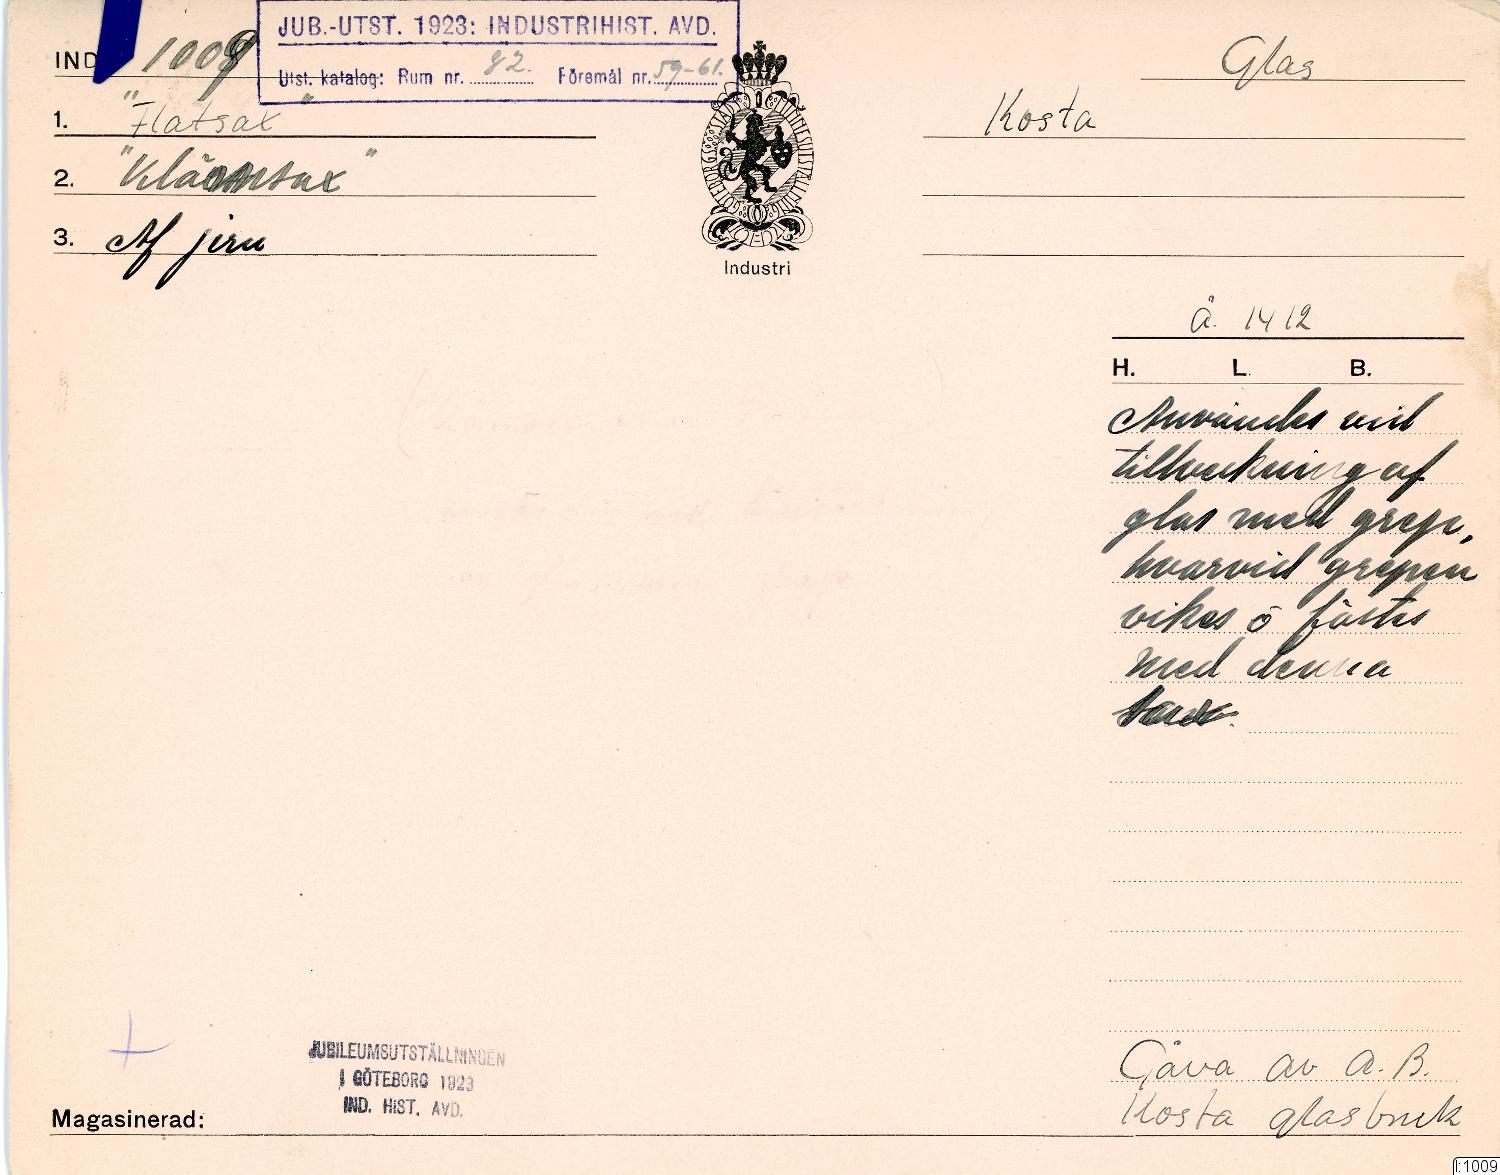 JUB.-UTST. 1923: INDUSTRIHIST. AVD.
Utst. katalog: Rum nr. 82. Föremål nr. 59-61.
IND 1009
Glas
1. "Flatsax"
Kosta
2.
3. Af jern
GÖTEBORGS STADS MINNESUTSTÄLLNING
Industri
Å. 1412
H. L. B.
Användes vid
tillverkning af
glas med grepe,
hvarvid grepen
vikes o fästes
med denna
sax.
JUBILEUMSUTSTÄLLNINGEN
I GÖTEBORG 1923
IND. HIST. AVD.
Magasinerad:
Gåva av A. B.
Kosta glasbruk
I:1009